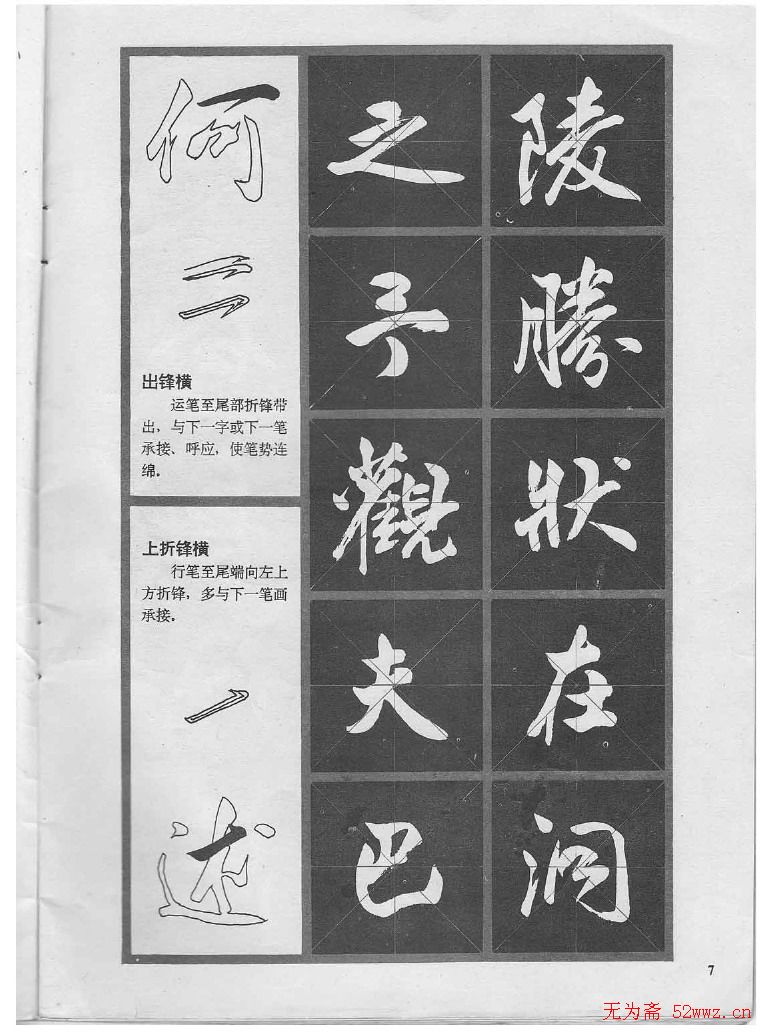 何
二
出锋横
运笔至尾部折锋带
出，与下一字或下一笔
承接、呼应，使笔势连
绵。
上折锋横
行笔至尾端向左上
方折锋，多与下一笔画
承接。
一
述
之予觀夫巴
陵勝狀在洞
7
无为斋 52wwz.cn